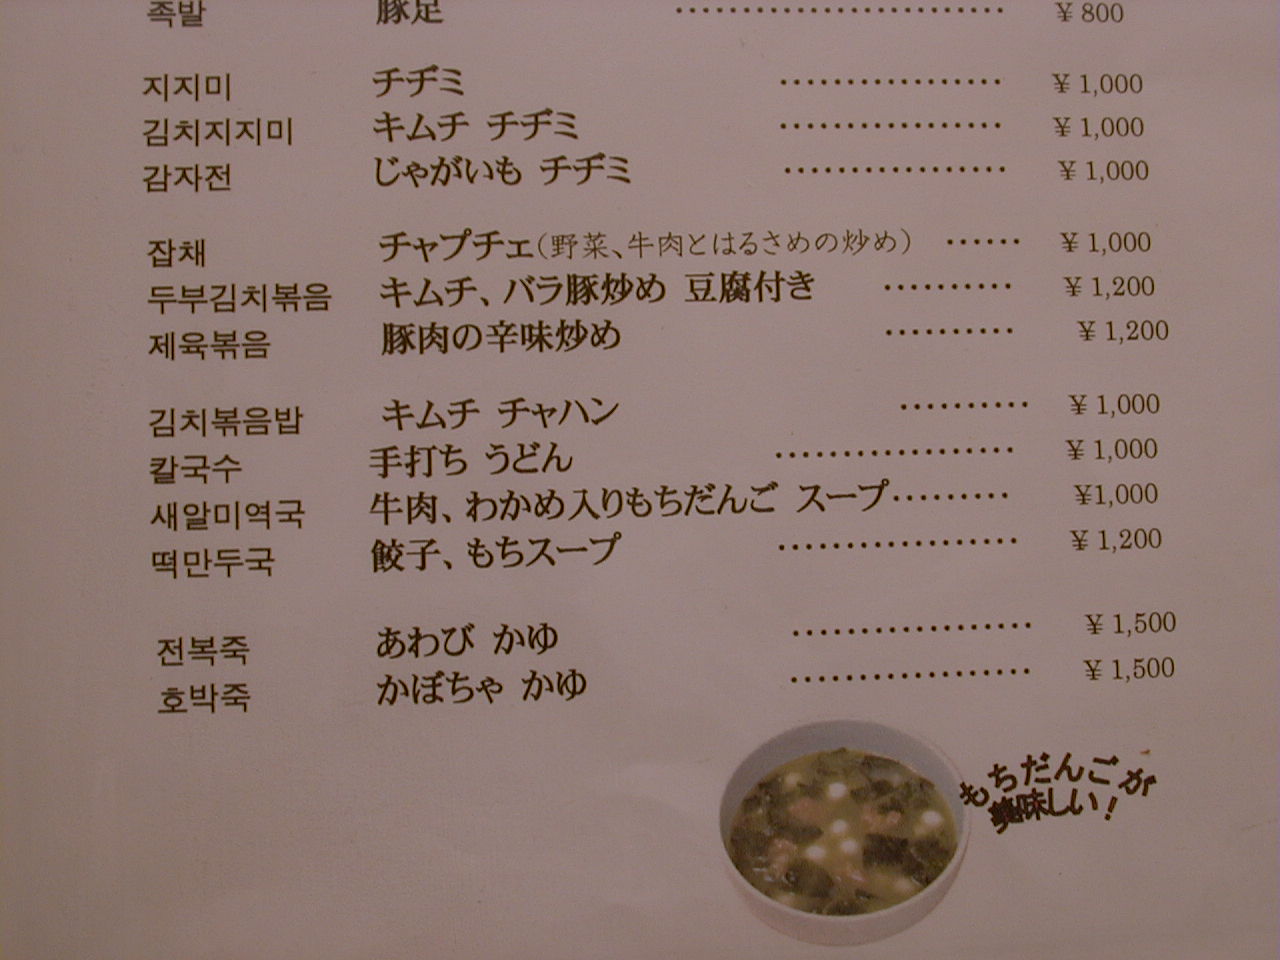 족발 豚足 ¥ 800
지지미 チヂミ ¥ 1,000
김치지지미 キムチ チヂミ ¥ 1,000
감자전 じゃがいも チヂミ ¥ 1,000
잡채 チャプチェ(野菜、牛肉とはるさめの炒め) ¥ 1,000
두부김치볶음 キムチ、バラ豚炒め 豆腐付き ¥ 1,200
제육볶음 豚肉の辛味炒め ¥ 1,200
김치볶음밥 キムチ チャハン ¥ 1,000
칼국수 手打ち うどん ¥ 1,000
새알미역국 牛肉、わかめ入りもちだんご スープ ¥1,000
떡만두국 餃子、もちスープ ¥ 1,200
전복죽 あわび かゆ ¥ 1,500
호박죽 かぼちゃ かゆ ¥ 1,500
もちだんごが
美味しい!